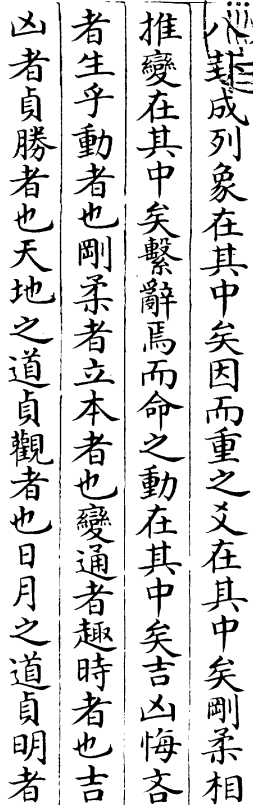 八卦成列象在其中矣因而重之爻在其中矣剛柔相
推變在其中矣繫辭焉而命之動在其中矣吉凶悔吝
者生乎動者也剛柔者立本者也變通者趣時者也吉
凶者貞勝者也天地之道貞觀者也日月之道貞明者